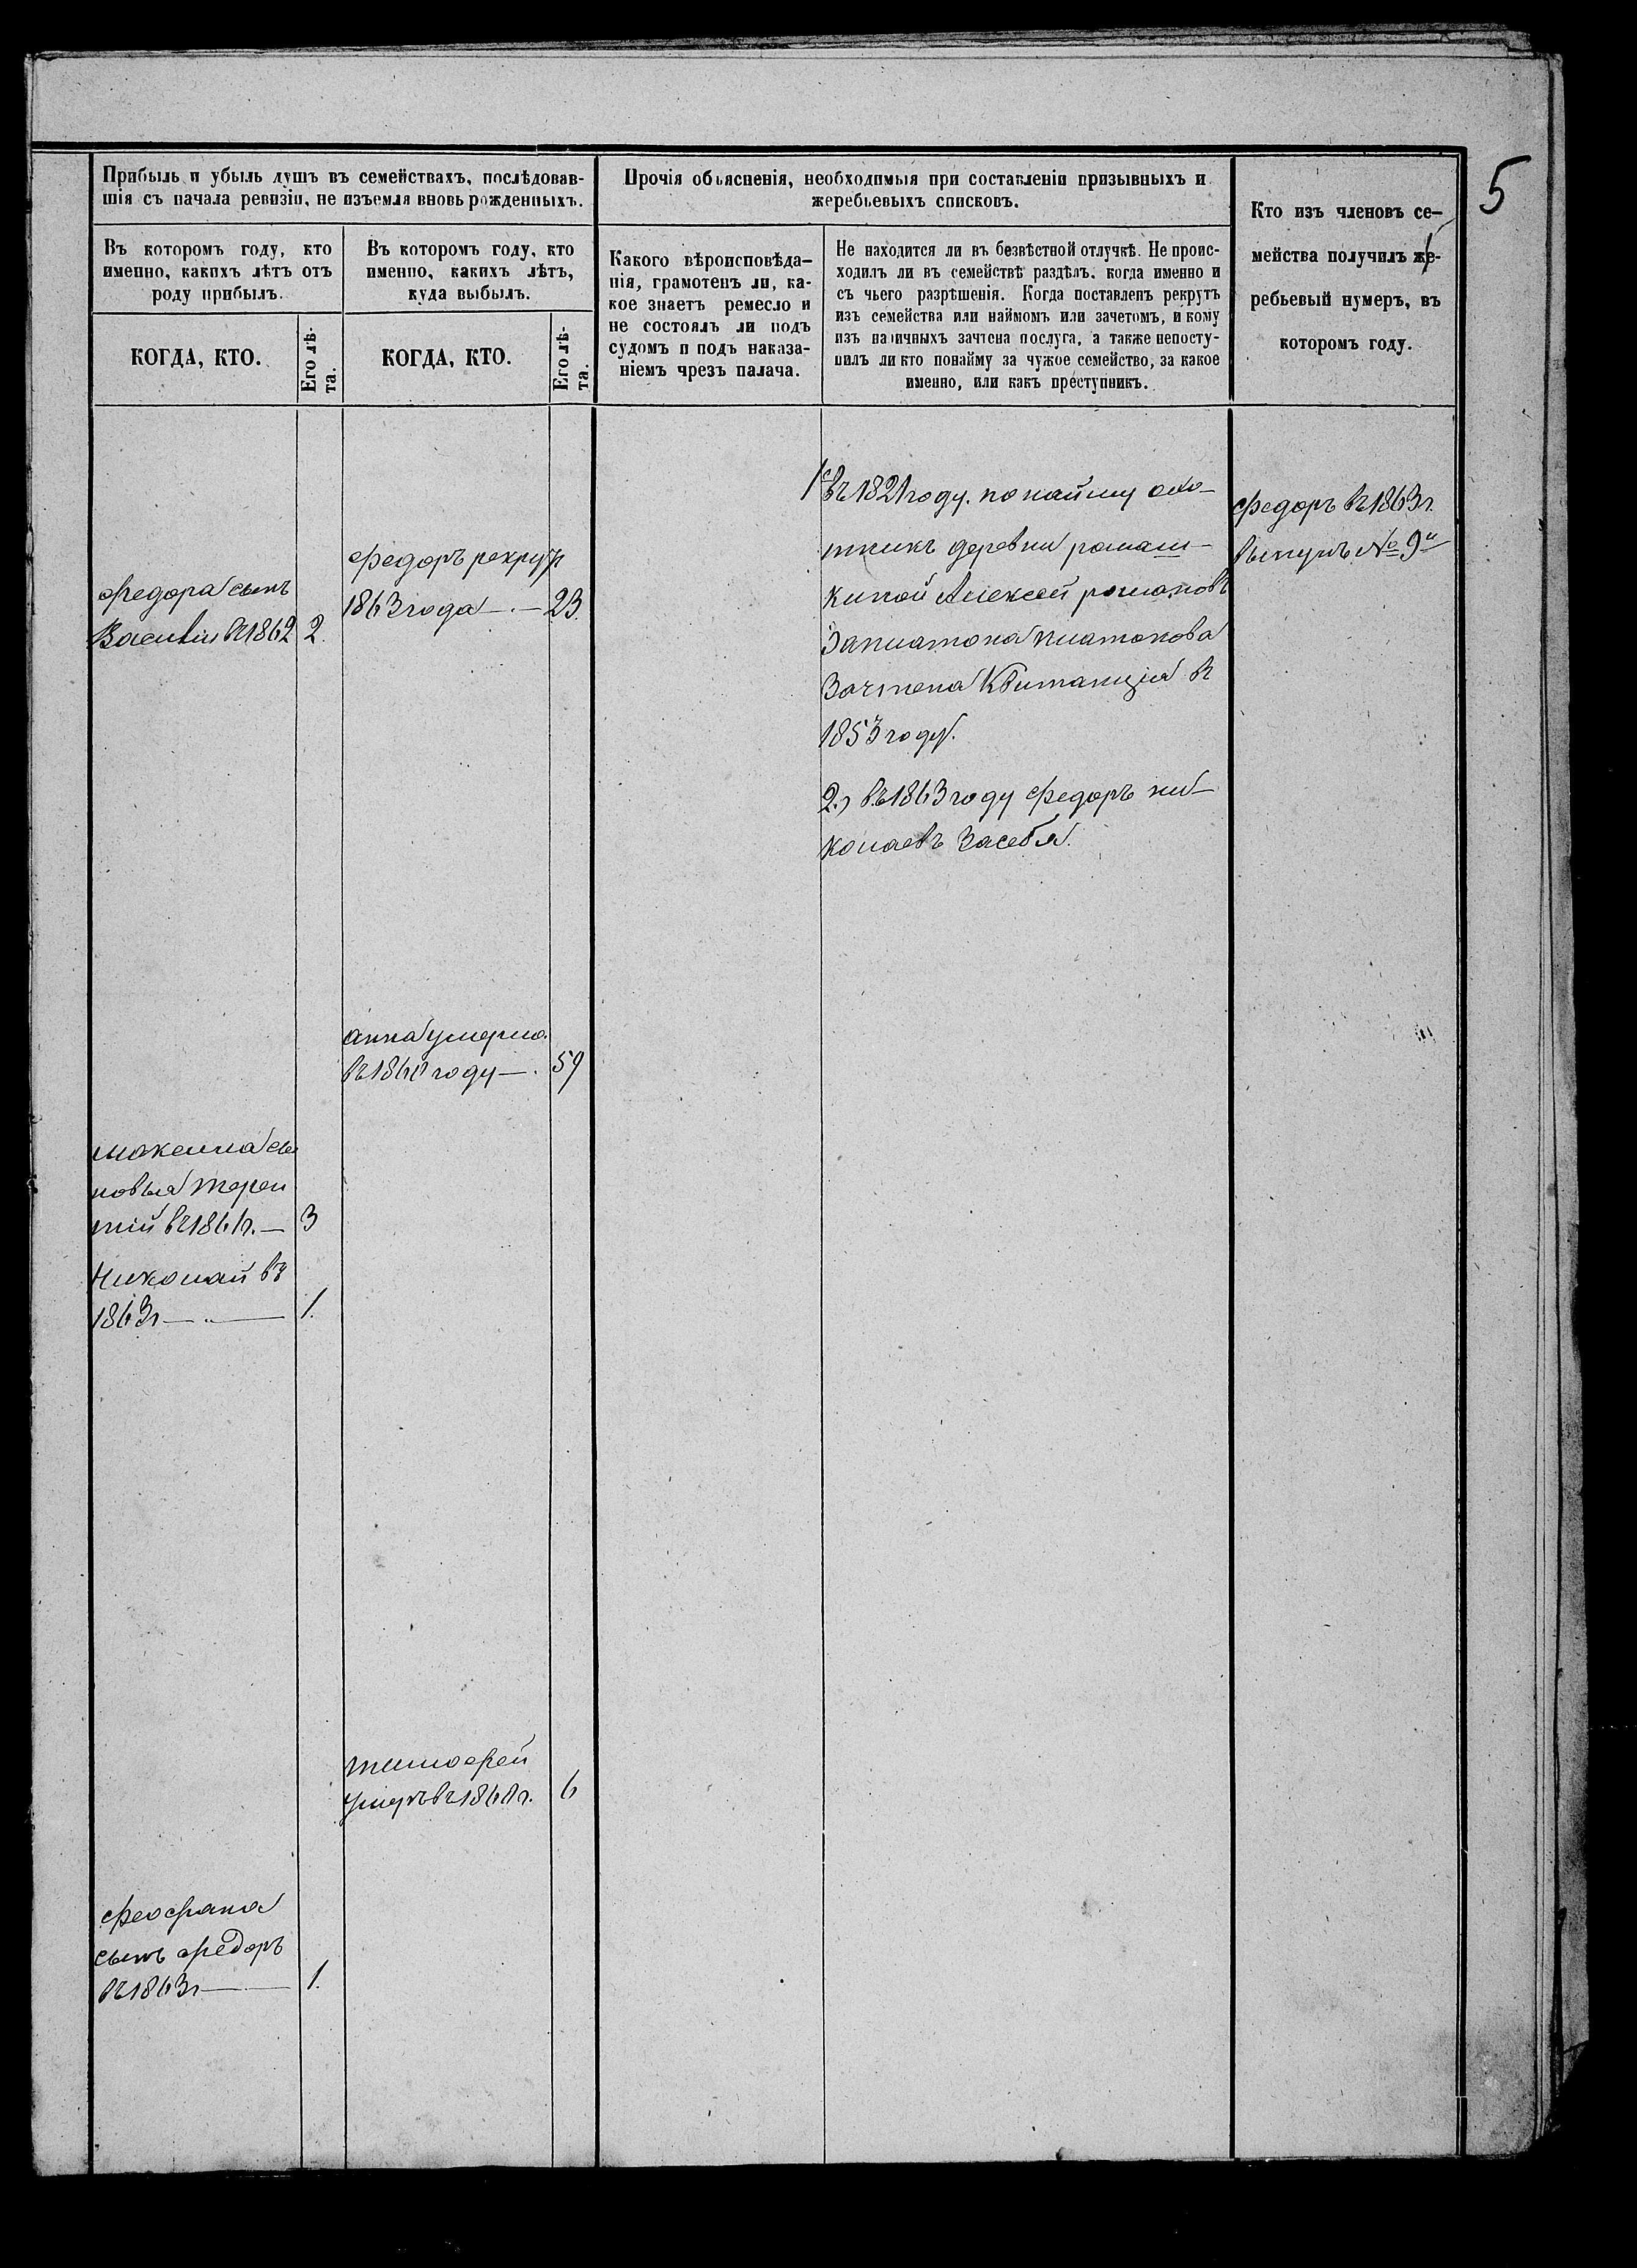 5
Прибыль и убыль душъ въ семействахъ, послѣдовав-
шія съ начала ревизіи, не изъемля вновь рожденныхъ.
Прочія объясненія, необходимыя при составленіи призывныхъ и
жеребьевыхъ списковъ.
Кто изъ членовъ се-
мейства получилъ же-
ребьевый нумеръ, въ
которомъ году.
Въ которомъ году, кто
именно, какихъ лѣтъ отъ
роду прибылъ.
Въ которомъ году, кто
именно, какихъ лѣтъ,
куда выбылъ.
Какого вѣроисповѣда-
нія, грамотенъ ли, ка-
кое знаетъ ремесло и
не состоялъ ли подъ
судомъ и подъ наказа-
ніемъ чрезъ палача.
Не находится ли въ безвѣстной отлучкѣ. Не проис-
ходилъ ли въ семействѣ раздѣлъ, когда именно и
съ чьего разрѣшенія. Когда поставленъ рекрутъ
изъ семейства или наймомъ или зачетомъ, и кому
изъ наличныхъ зачтена послуга, а также непосту-
пилъ ли кто понайму за чужое семейство, за какое
именно, или какъ преступникъ.
КОГДА, КТО.
Его лѣ-
та.
КОГДА, КТО.
Его лѣ-
та.
федора сынъ
Василій въ 1862 2.
федоръ рекрутъ
1863 года — 23.
1 въ 1821 году. по найму охо-
тникъ деревни ромаш-
киной Алексей романовъ
За платона платонова
Зачтена Квитанція въ
1853 году.
2.) въ 1863 году федоръ ни-
колаевъ За себя.
федоръ въ 1863 г.
вынулъ № 9й
анна умерла
въ 1860 году — 59
максима сы
новья терен
тій въ 1861 г. — 3
Николай въ
1863 г — 1.
тимофей
умеръ въ 1860 г. 6
феофана
сынъ федоръ
въ 1863 г — 1.